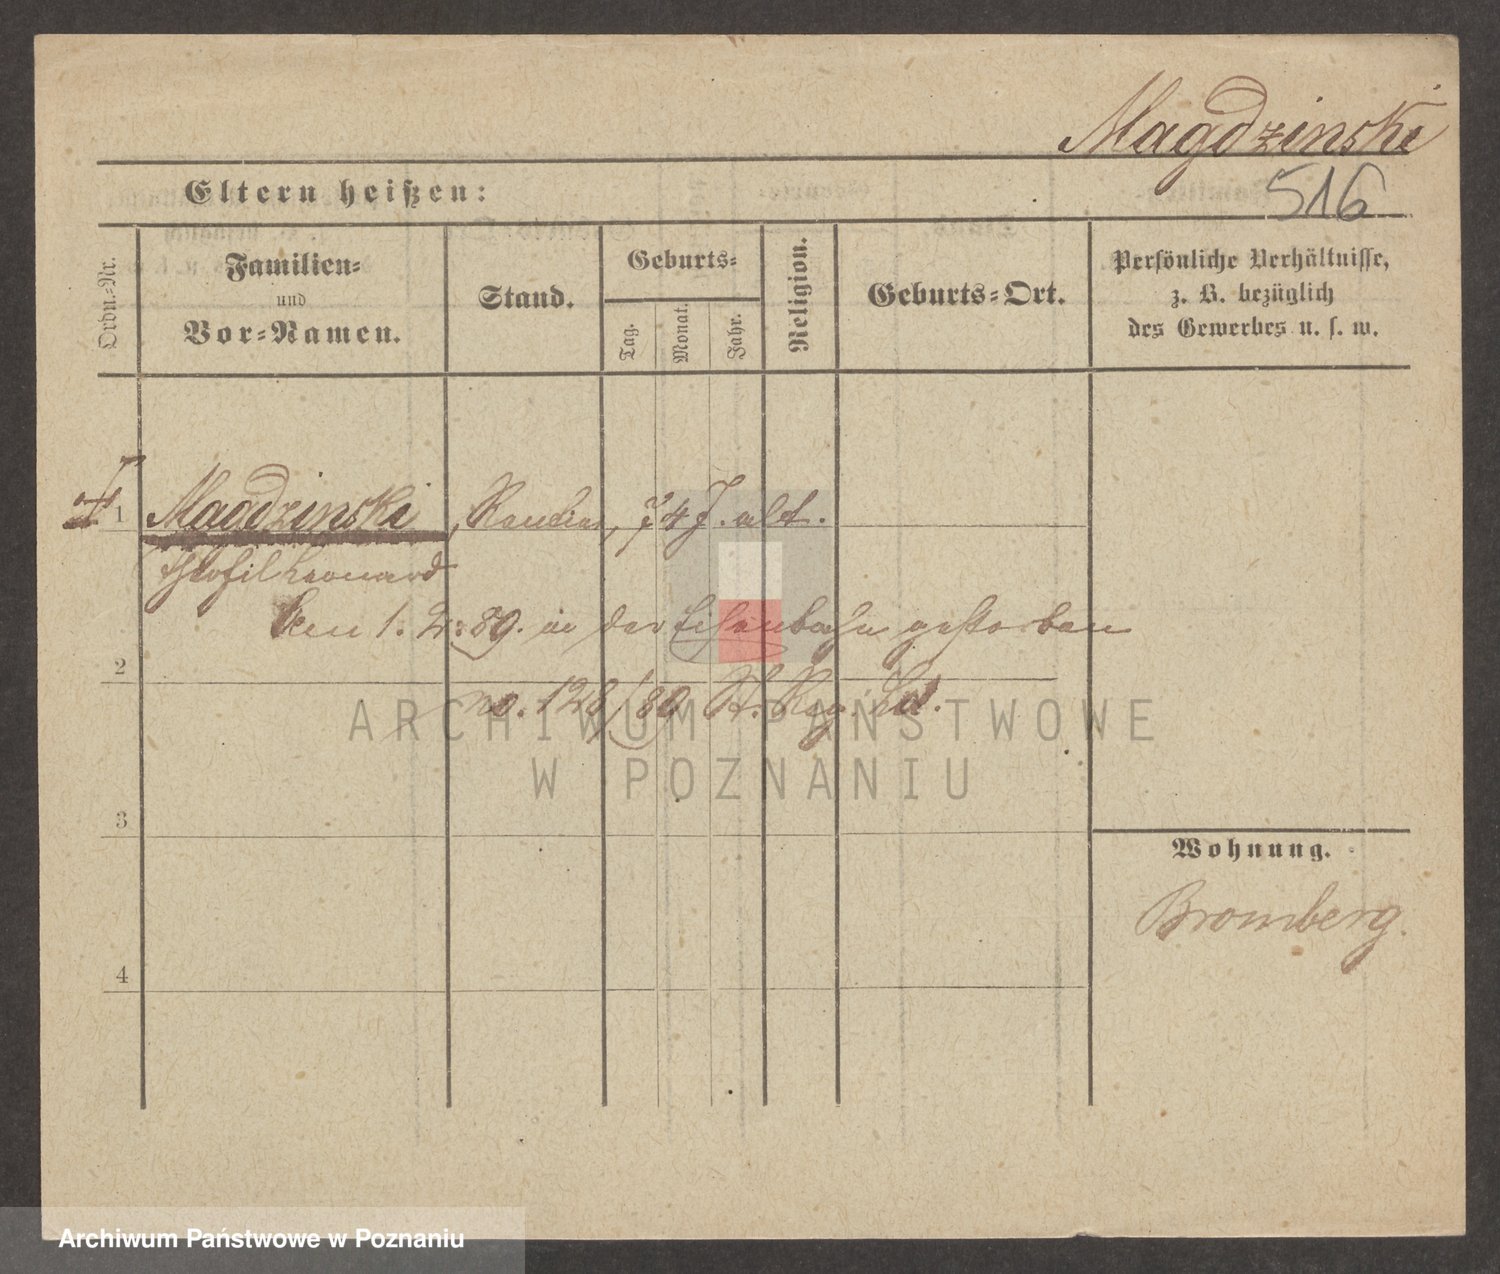 Magdzinski
516
Eltern heißen:
Ordn.-Nr.
Familien-
und
Vor-Namen.
Stand.
Geburts-
Tag.
Monat.
Jahr.
Religion.
Geburts-Ort.
Persönliche Verhältnisse,
z. B. bezüglich
des Gewerbes u. s. w.
1 Magdzinski, Rentier, 74 J. alt.
Theofil Leonard
Am 1. 2. 89. in der Eisenbahn gestorben
no. 128/89 St. Reg.
2
3
4
Wohnung.
Bromberg.
ARCHIWUM PAŃSTWOWE
W POZNANIU
Archiwum Państwowe w Poznaniu